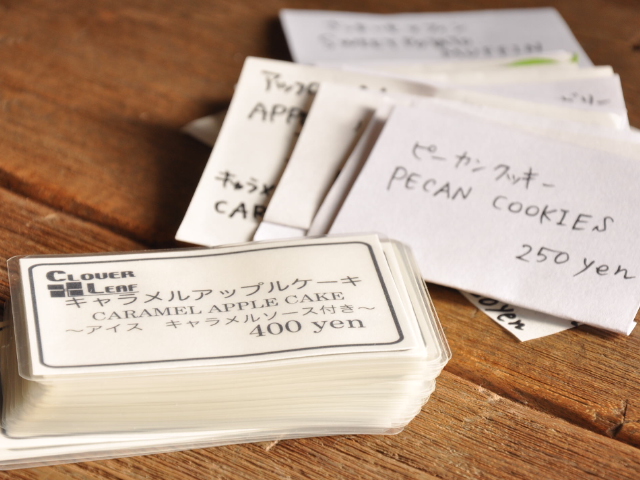 CLOVER
LEAF
キャラメルアップルケーキ
CARAMEL APPLE CAKE
～アイス キャラメルソース付き～
400 yen
ピーカンクッキー
PECAN COOKIES
250 yen
アップ
APP
キャラメ
CAR
yen